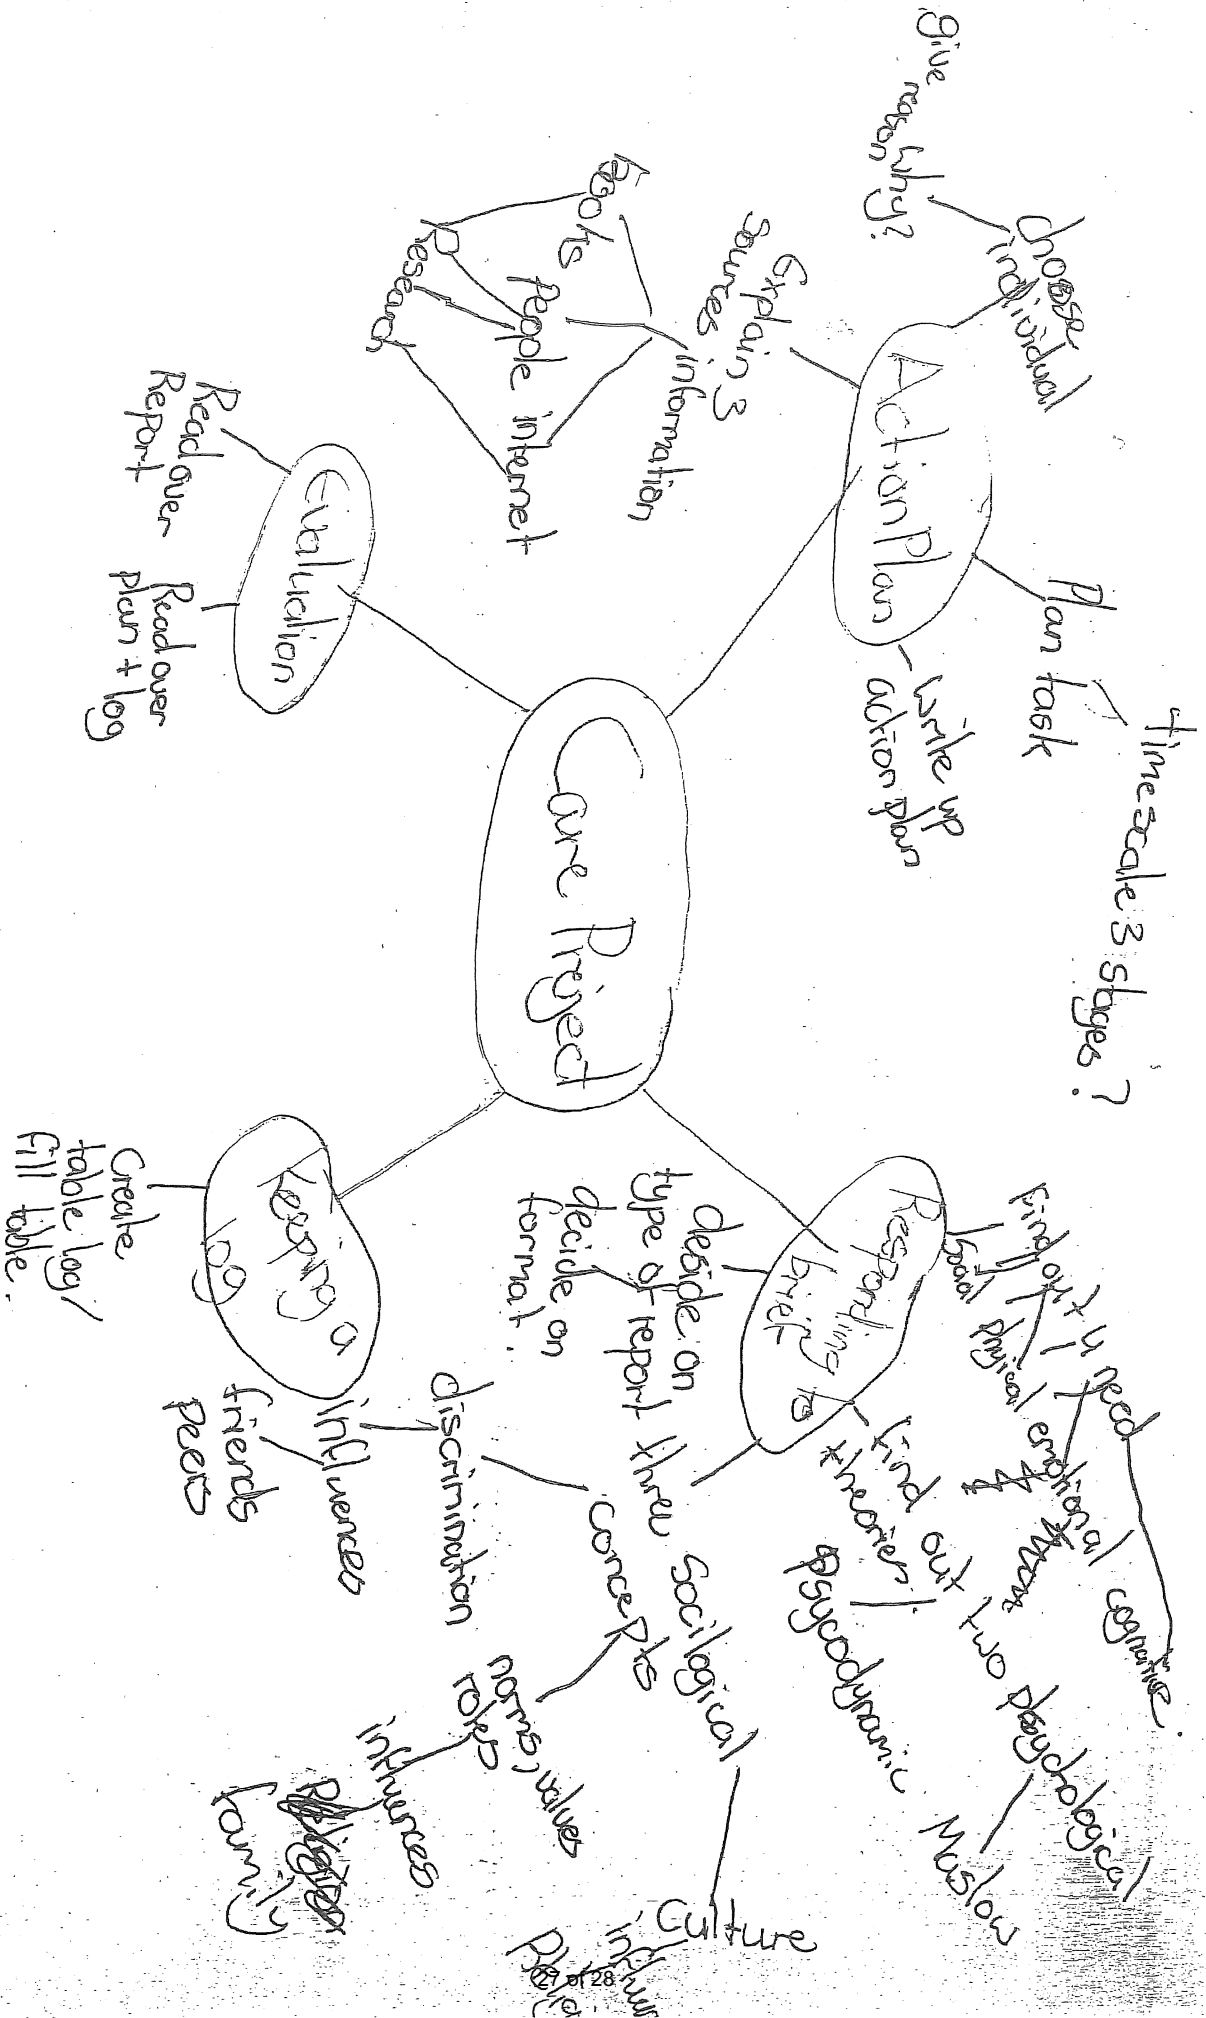 Care Project
Action Plan
choose
individual
give reason why?
Plan task
timescale 3 stages?
write up
action plan
Explain 3
sources
information
Books
People
internet
Research
Evaluation
Read over
Report
Read over
plan + log
Responding to
brief
Find out 4 need
Soial phyical emotional cognative.
Find out two pbsychological
theories.
psycodynamic
Maslow
deside on
type of report
decide on
format.
three socilogical
concepts
discrimination
influences
friends
Peers
norms, values
roles
influences
family
Culture
Keeping a
log
Create
table log/
fill table.
27 of 28